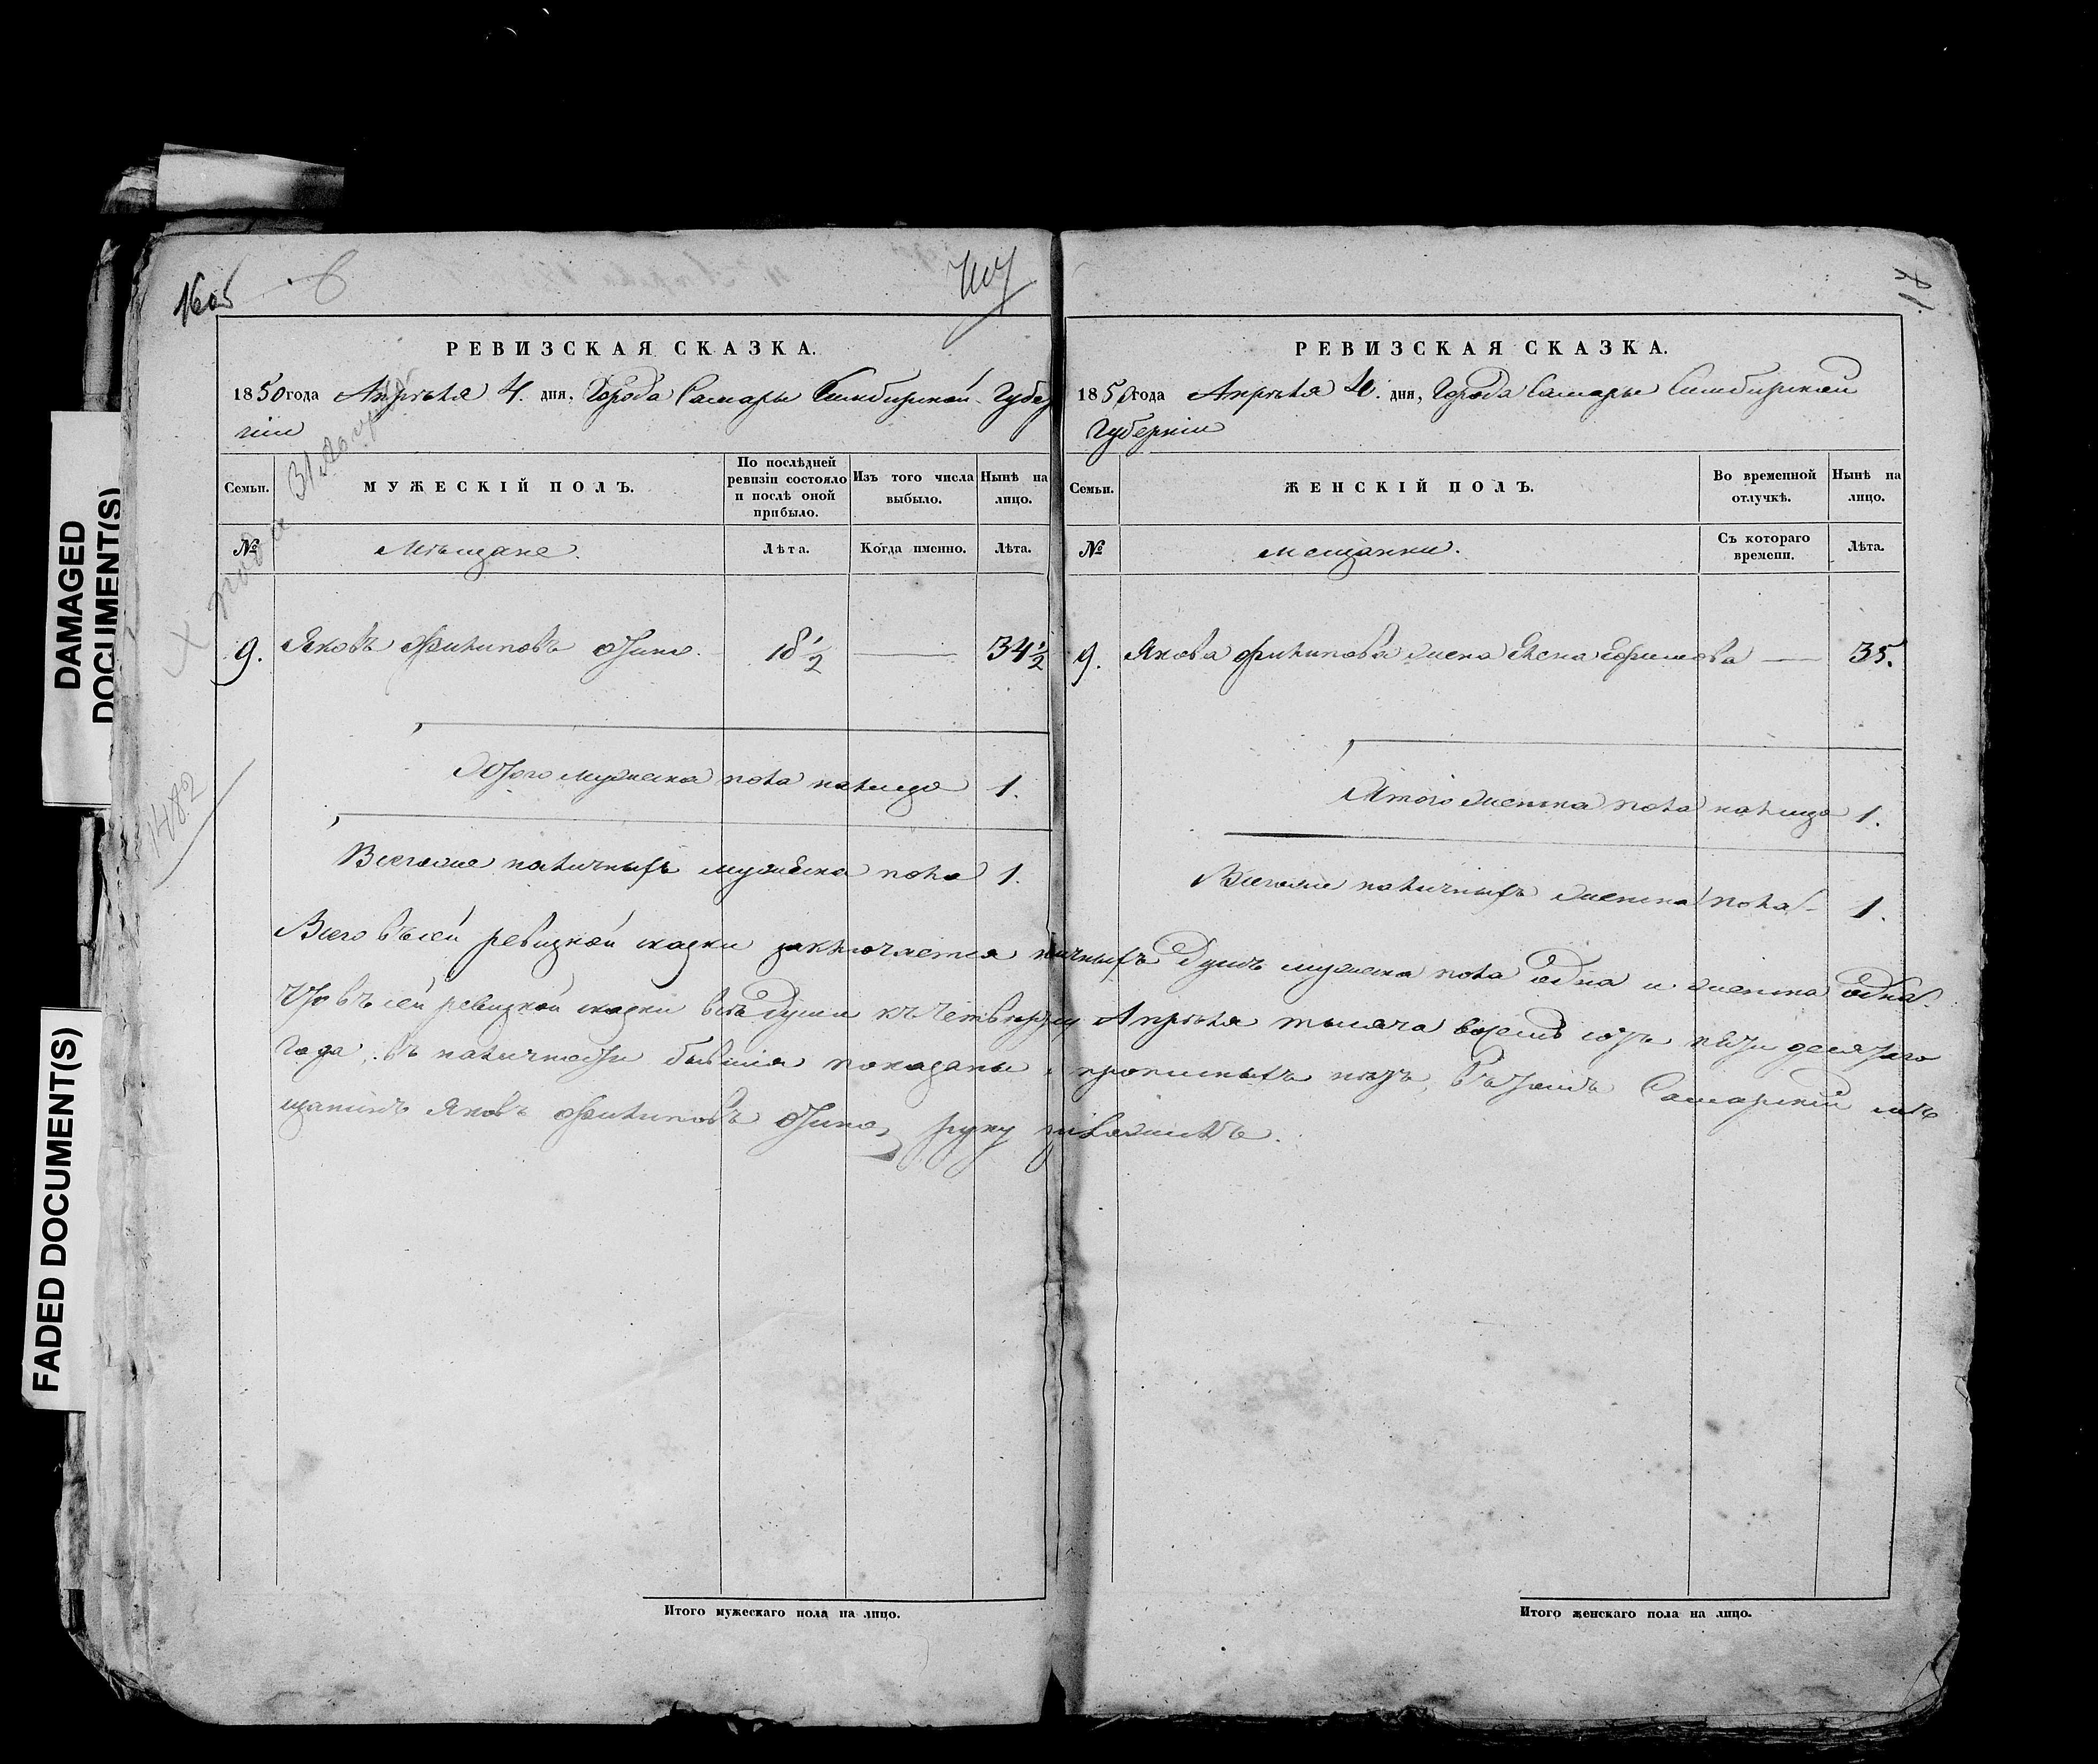 DAMAGED
DOCUMENT(S)
FADED DOCUMENT(S)
1605
1482
РЕВИЗСКАЯ СКАЗКА.
1850 года Апрѣля 4. дня, Города Самары Симбирской Губер
ніи
Семьи.
МУЖЕСКІЙ ПОЛЪ.
По послѣдней
ревизіи состояло
и послѣ оной
прибыло.
Изъ того числа
выбыло.
Нынѣ на
лицо.
№
Мѣщане.
Лѣта.
Когда именно.
Лѣта.
9. Яковъ Филиповъ 18½ 34½
Итого мужеска пола налицо 1.
Всего же наличныхъ мужеска пола 1.
РЕВИЗСКАЯ СКАЗКА.
1850 года Апрѣля 4. дня, Города Самары Симбирской
Губерніи
Семьи.
ЖЕНСКІЙ ПОЛЪ.
Во временной
отлучкѣ.
Нынѣ на
лицо.
№
мещанки.
Съ котораго
времени.
Лѣта.
9. Якова Филипова жена Ефимова 35.
Итого женска пола налицо 1.
Всего же наличныхъ женска пола 1.
Всего въ сей ревизкой скаски заключается личныхъ душъ мужеска пола одна и женска одна.
Что въ сей ревизкой скаски всѣ души къ четвертому Апрѣля тысяча восемь сотъ пять десятого
года, въ наличности бывшія показаны и прописныхъ нѣтъ, въ томъ Самарскій мѣ
щанинъ Яковъ Филиповъ руку приложилъ.
Итого мужескаго пола на лицо.
Итого женскаго пола на лицо.